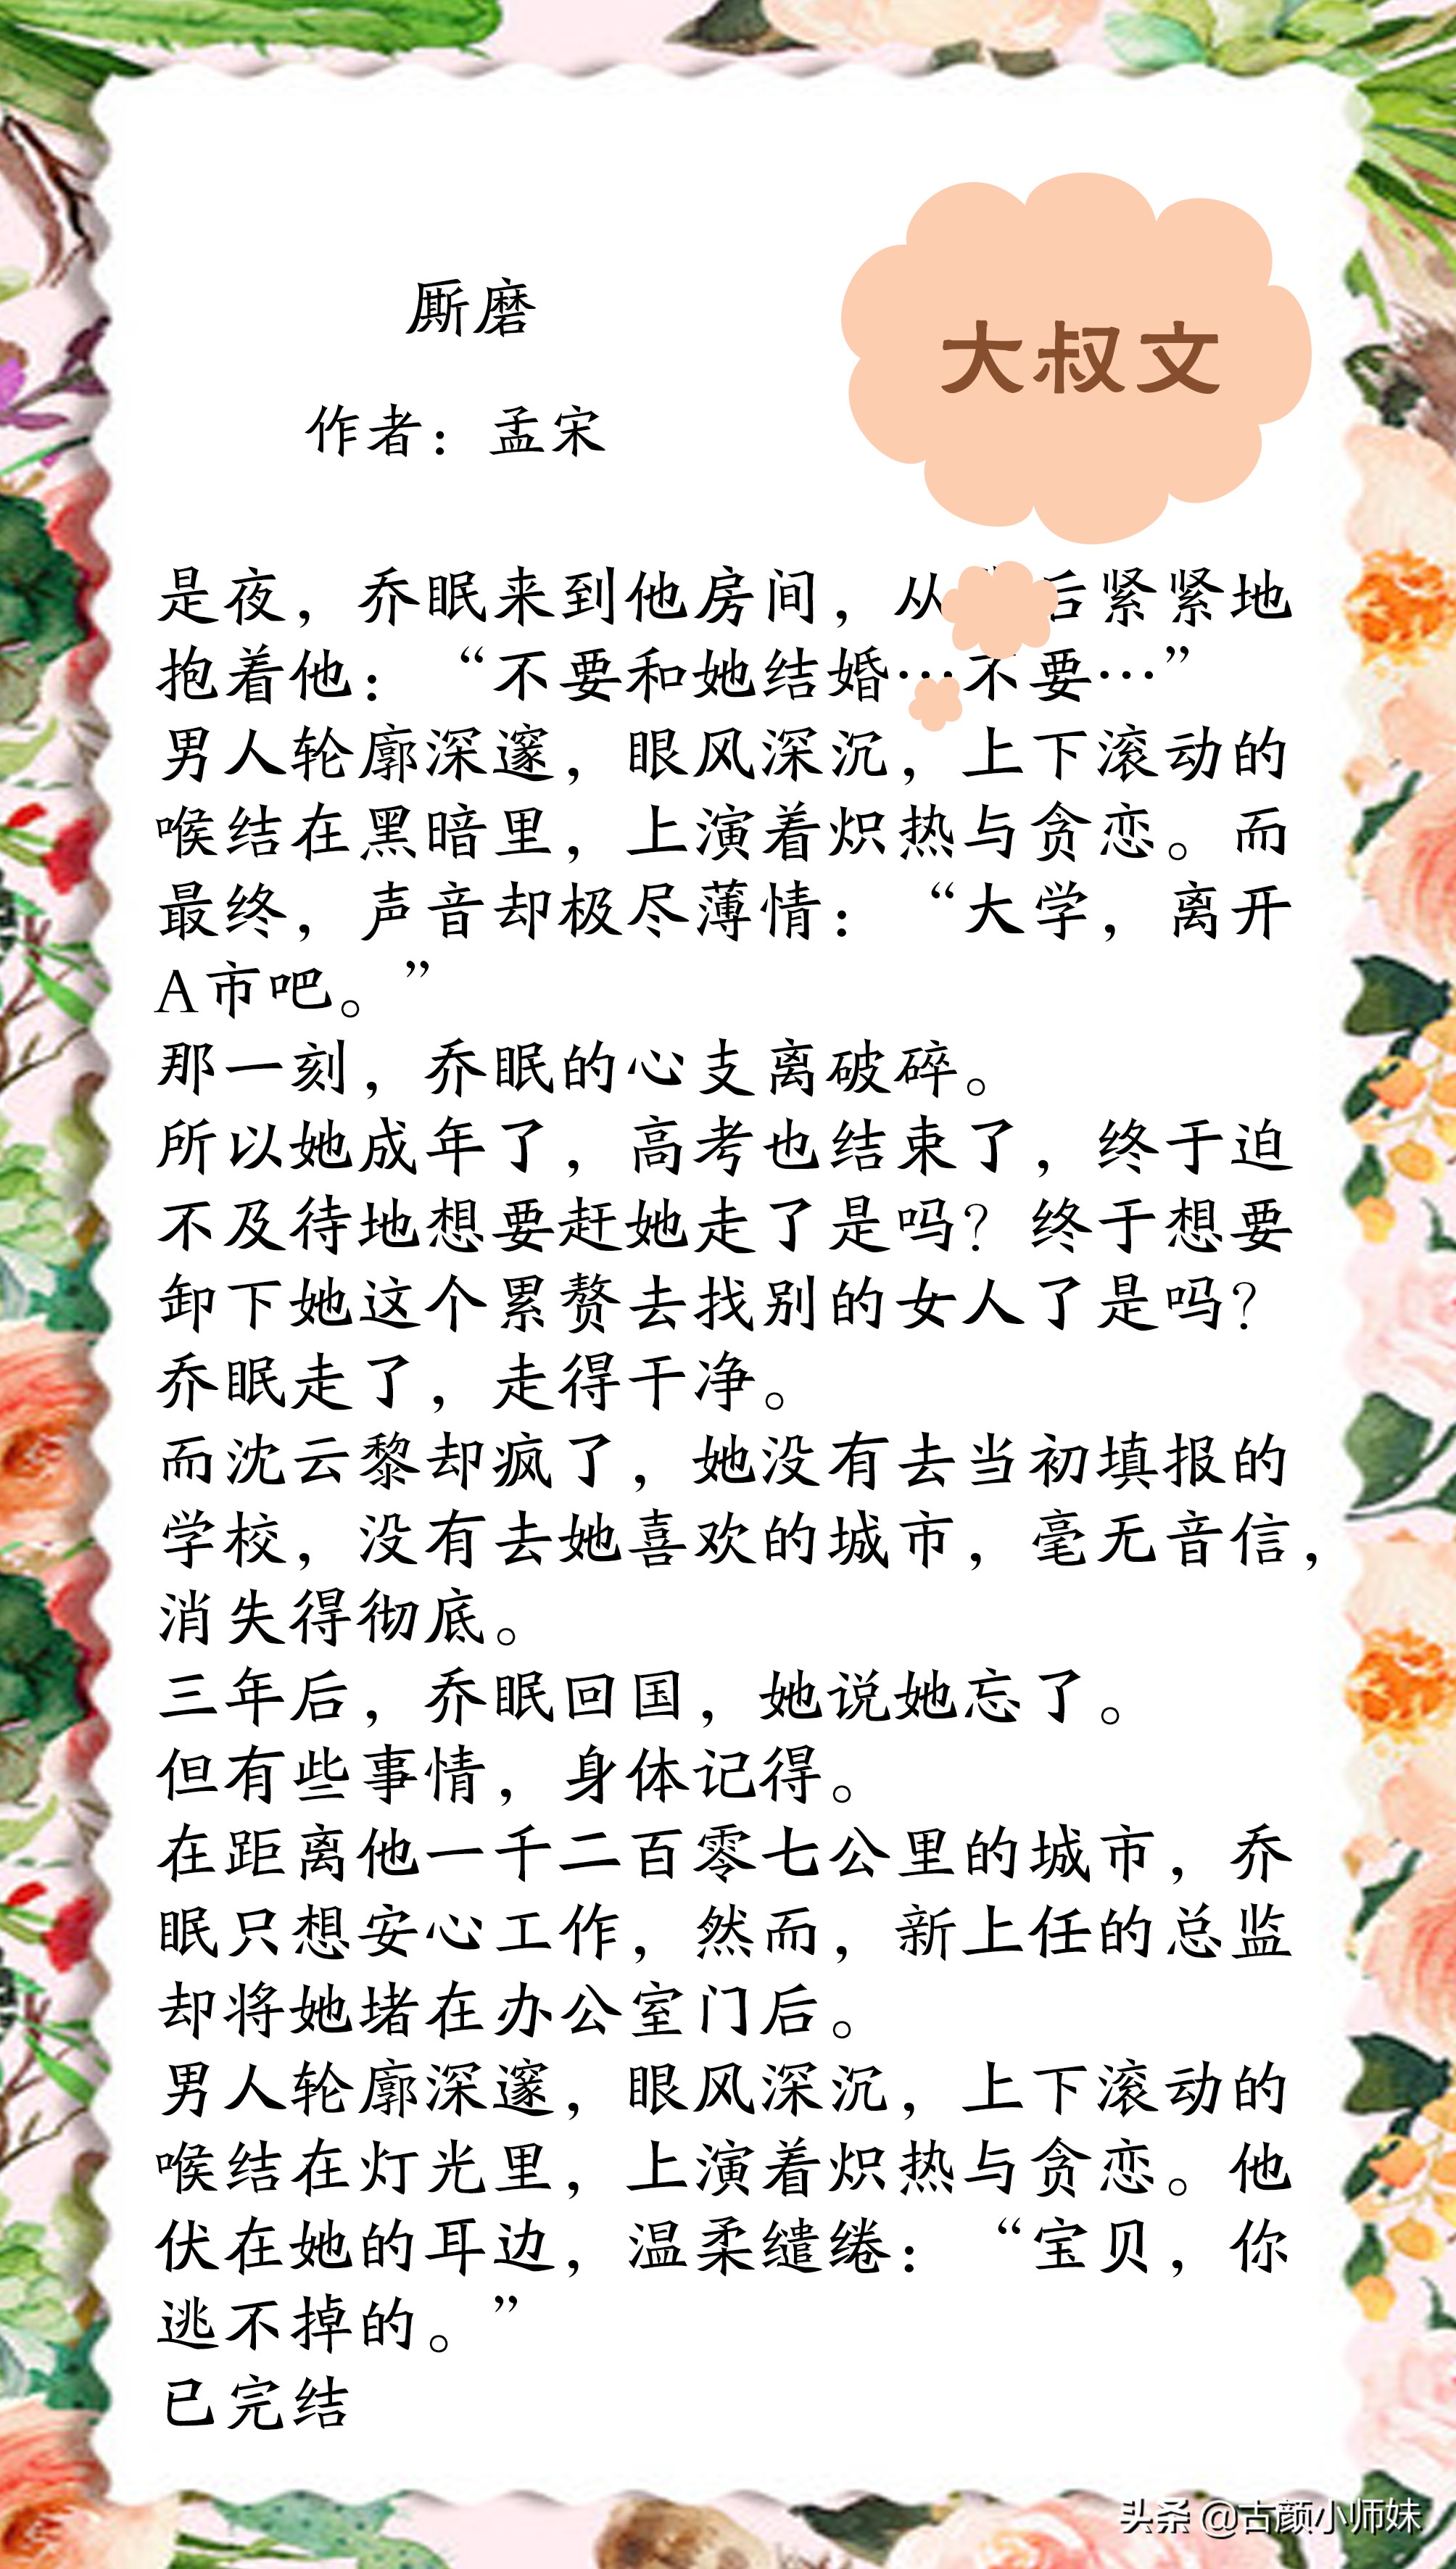 厮磨
大叔文
作者：孟宋
是夜，乔眠来到他房间，从 后紧紧地
抱着他：“不要和她结婚…不要…”
男人轮廓深邃，眼风深沉，上下滚动的
喉结在黑暗里，上演着炽热与贪恋。而
最终，声音却极尽薄情：“大学，离开
A市吧。”
那一刻，乔眠的心支离破碎。
所以她成年了，高考也结束了，终于迫
不及待地想要赶她走了是吗？终于想要
卸下她这个累赘去找别的女人了是吗？
乔眠走了，走得干净。
而沈云黎却疯了，她没有去当初填报的
学校，没有去她喜欢的城市，毫无音信，
消失得彻底。
三年后，乔眠回国，她说她忘了。
但有些事情，身体记得。
在距离他一千二百零七公里的城市，乔
眠只想安心工作，然而，新上任的总监
却将她堵在办公室门后。
男人轮廓深邃，眼风深沉，上下滚动的
喉结在灯光里，上演着炽热与贪恋。他
伏在她的耳边，温柔缱绻：“宝贝，你
逃不掉的。”
已完结
头条 @古颜小师妹